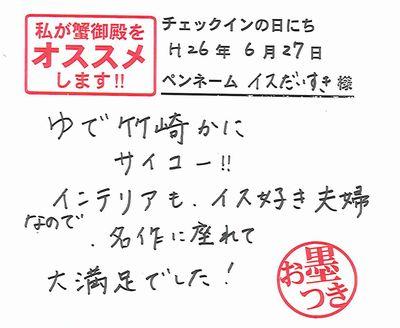 私が蟹御殿を
オススメ
します!!
チェックインの日にち
H26年 6月27日
ペンネーム イスだいすき 様
ゆで竹崎かに
サイコー!!
インテリアも、イス好き夫婦
なので、名作に座れて
大満足でした!
お墨つき